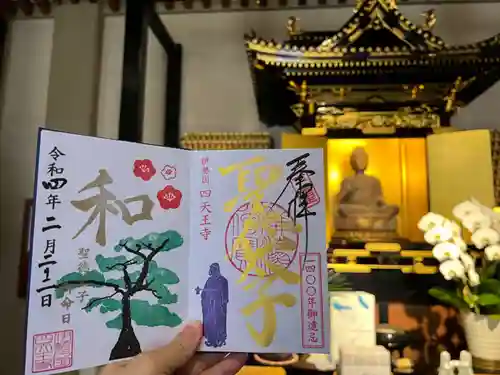 奉拝
聖太子
伊勢国 四天王寺
一四〇〇年御遠忌
和
聖徳太子
命日
令和四年二月二十二日